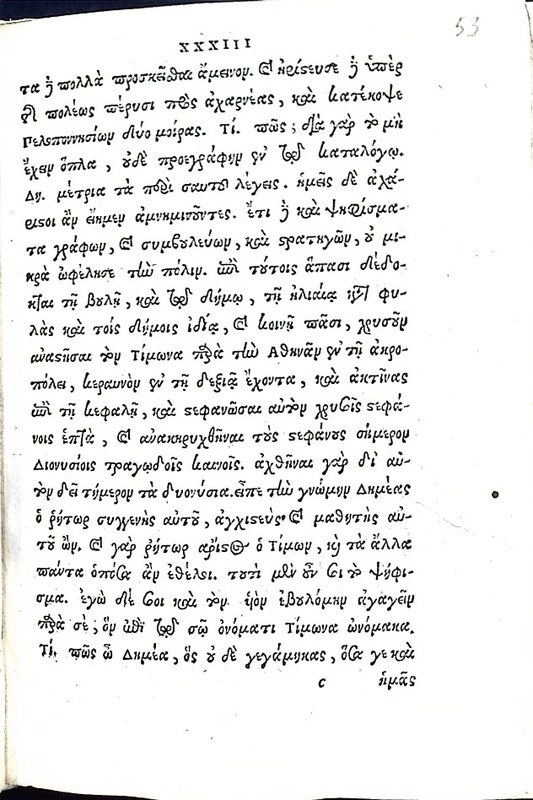 XXXIII
53
τα ἢ πολλὰ προσκεῖσθαι ἄμεινον. καὶ ἠρίστευσε ἢ ὑπὲρ
τῆς πόλεως πέρυσι πρὸς ἀχαρνέας, καὶ κατέκοψε
Πελοπονησίων δύο μοίρας. Τί. πῶς; διὰ γὰρ τὸ μὴ
ἔχειν ὅπλα, οὐδὲ προεγράφην ἐν τῷ καταλόγῳ.
Δη. μέτρια τὰ περὶ σαυτοῦ λέγεις. ἡμεῖς δὲ ἀχά-
ριστοι ἂν εἴημεν ἀμνημονοῦντες. ἔτι ἢ καὶ ψηφίσμα-
τα γράφων, καὶ συμβουλεύων, καὶ στρατηγῶν, οὐ μι-
κρὰ ὠφέλησε τὴν πόλιν. ἐπὶ τούτοις ἅπασι δεδό-
χθαι τῇ βουλῇ, καὶ τῷ δήμῳ, τῇ ἡλιαίᾳ κατὰ φυ-
λὰς καὶ τοῖς δήμοις ἰδίᾳ, καὶ κοινῇ πᾶσι, χρυσοῦν
ἀναστῆσαι τὸν Τίμωνα παρὰ τὴν Ἀθηνᾶν ἐν τῇ ἀκρο-
πόλει, κεραυνὸν ἐν τῇ δεξιᾷ ἔχοντα, καὶ ἀκτῖνας
ἐπὶ τῇ κεφαλῇ, καὶ στεφανῶσαι αὐτὸν χρυσοῖς στεφά-
νοις ἑπτὰ, καὶ ἀνακηρυχθῆναι τοὺς στεφάνους σήμερον
Διονυσίοις τραγῳδοῖς καινοῖς. ἀχθῆναι γὰρ δι' αὐ-
τὸν δεῖ τήμερον τὰ δυονύσια. εἶπε τὴν γνώμην Δημέας
ὁ ῥήτωρ συγγενὴς αὐτοῦ, ἀγχιστεὺς καὶ μαθητὴς αὐ-
τοῦ ὤν. καὶ γὰρ ῥήτωρ ἄριστος ὁ Τίμων, καὶ τὰ ἄλλα
πάντα ὁπόσα ἂν ἐθέλοι. τουτὶ μὲν οὖν σοι τὸ ψήφι-
σμα. ἐγὼ δέ σοι καὶ τὸν υἱὸν ἐβουλόμην ἀγαγεῖν
παρὰ σὲ, ὃν ἐπὶ τῷ σῷ ὀνόματι Τίμωνα ὠνόμακα.
Τί. πῶς ὦ Δημέα, ὃς οὐδὲ γεγάμηκας, ὅσα γε καὶ
c ἡμᾶς